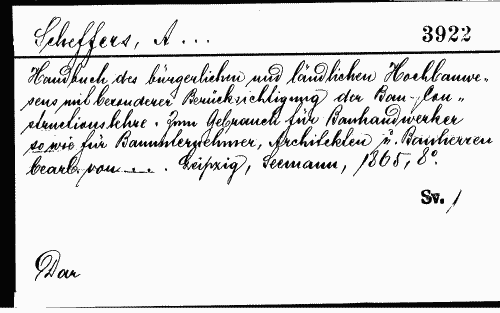 Scheffers, A ... 3922
Handbuch des bürgerlichen und ländlichen Hochbauwe„
sens mit besonderer Berücksichtigung der Bau-Con„
structionslehre. Zum Gebrauch für Bauhandwerker
so wie für Bauunternehmer, Architekten u. Bauherren
bearb. von .... Leipzig, Seemann, 1865, 8°.
Sv. 1
Dar